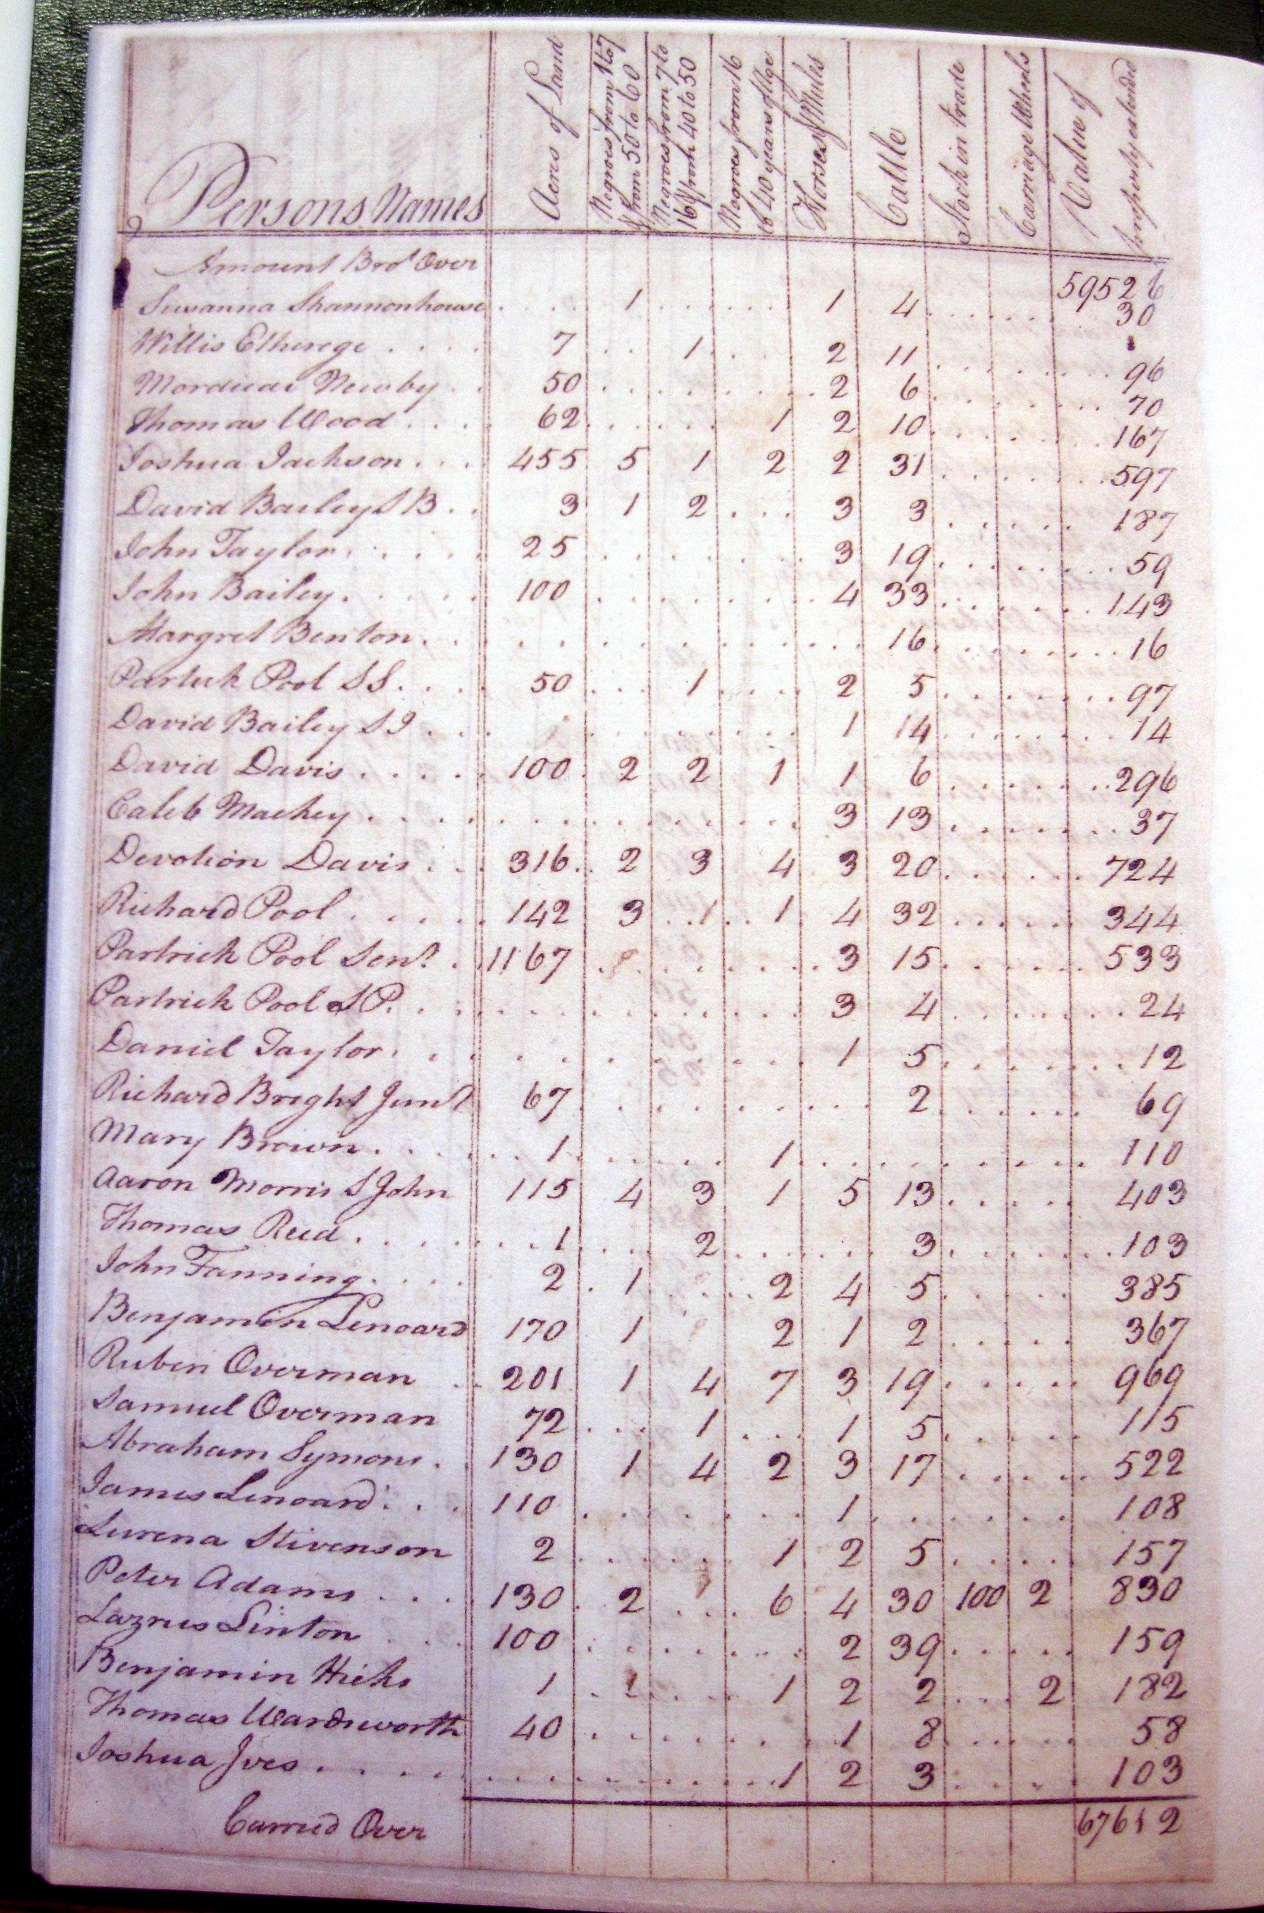 Persons Names | Acres of Land | Negroes from 1 to 7 & from 50 to 60 | Negroes from 7 to 16 & from 40 to 50 | Negroes from 16 to 40 years of Age | Horses & Mules | Cattle | Stock in trade | Carriage Wheels | Value of property
Amount Bro.t Over 59526
Susanna Shannonhouse . . . . 1 . . . . . . 1 4 . . . . . . 30
Willis Etherege . . . . 7 . . 1 . . . 2 11 . . . . . . . 96
Mordicai Newby . . 50 . . . . . . . . . 2 6 . . . . . . . 70
Thomas Wood . . . . 62 . . . . . . 1 2 10 . . . . . . . 167
Joshua Jackson . . . 455 5 1 2 2 31 . . . . . . . 597
David Bailey S B . . 3 1 2 . . . 3 3 . . . . . . 187
John Taylor . . . . . 25 . . . . . . . . 3 19 . . . . . . . 59
John Bailey . . . . . 100 . . . . . . . . . 4 33 . . . . . . . 143
Margret Benton . . . . . . . . . . . . 16 . . . . . . . 16
Partick Pool S S . . . . 50 . . . 1 . . . . 2 5 . . . . . . . 97
David Bailey S J . . . . . . . . . . 1 14 . . . . . . . 14
David Davis . . . . . 100 2 2 1 1 6 . . . . . . . 296
Caleb Mackey . . . . . . . . . . . . . 3 13 . . . . . . . 37
Devotion Davis . . . 316 2 3 4 3 20 . . . . . . 724
Richard Pool . . . . . 142 3 1 1 4 32 . . . . . . 344
Partrick Pool Sen.r . 1167 . . . . . . . 3 15 . . . . . . 533
Partrick Pool S P. . . . . . . . . . . . . 3 4 . . . . . . . 24
Daniel Taylor . . . . . . . . . . . . 1 5 . . . . . . . 12
Richard Bright Jun.r 67 . . . . . . . . . . 2 . . . . . . 69
Mary Brown . . . . . 1 . . . . . 1 . . . . . . . . . 110
Aaron Morris S John 115 4 3 1 5 13 . . . . . 403
Thomas Reed . . . . . . 1 . . . 2 . . . . . . 3 . . . . . . . 103
John Fanning . . . . 2 1 . . . . 2 4 5 . . . . . 385
Benjamin Lenoard 170 1 2 1 2 . . . . . 367
Ruben Overman . 201 1 4 7 3 19 . . . . . 969
Samuel Overman 72 . . . 1 . . . 1 5 . . . . . 115
Abraham Symons . 130 1 4 2 3 17 . . . . . 522
James Lenoard . . . 110 . . . . . . . 1 . . . . . . . 108
Lurena Stivenson 2 . . . . . . 1 2 5 . . . . . 157
Peter Adams . . . . 130 2 . . . 6 4 30 100 2 830
Lazrus Linton . . . 100 . . . . . . . . 2 39 . . . . . 159
Benjamin Hicks 1 . 1 . . . . 1 2 2 . . . 2 182
Thomas Wardsworth 40 . . . . . . . . 1 8 . . . . . . 58
Joshua Jves . . . . . . . . . . . . . . . . 1 2 3 . . . . . 103
Carried Over 67612